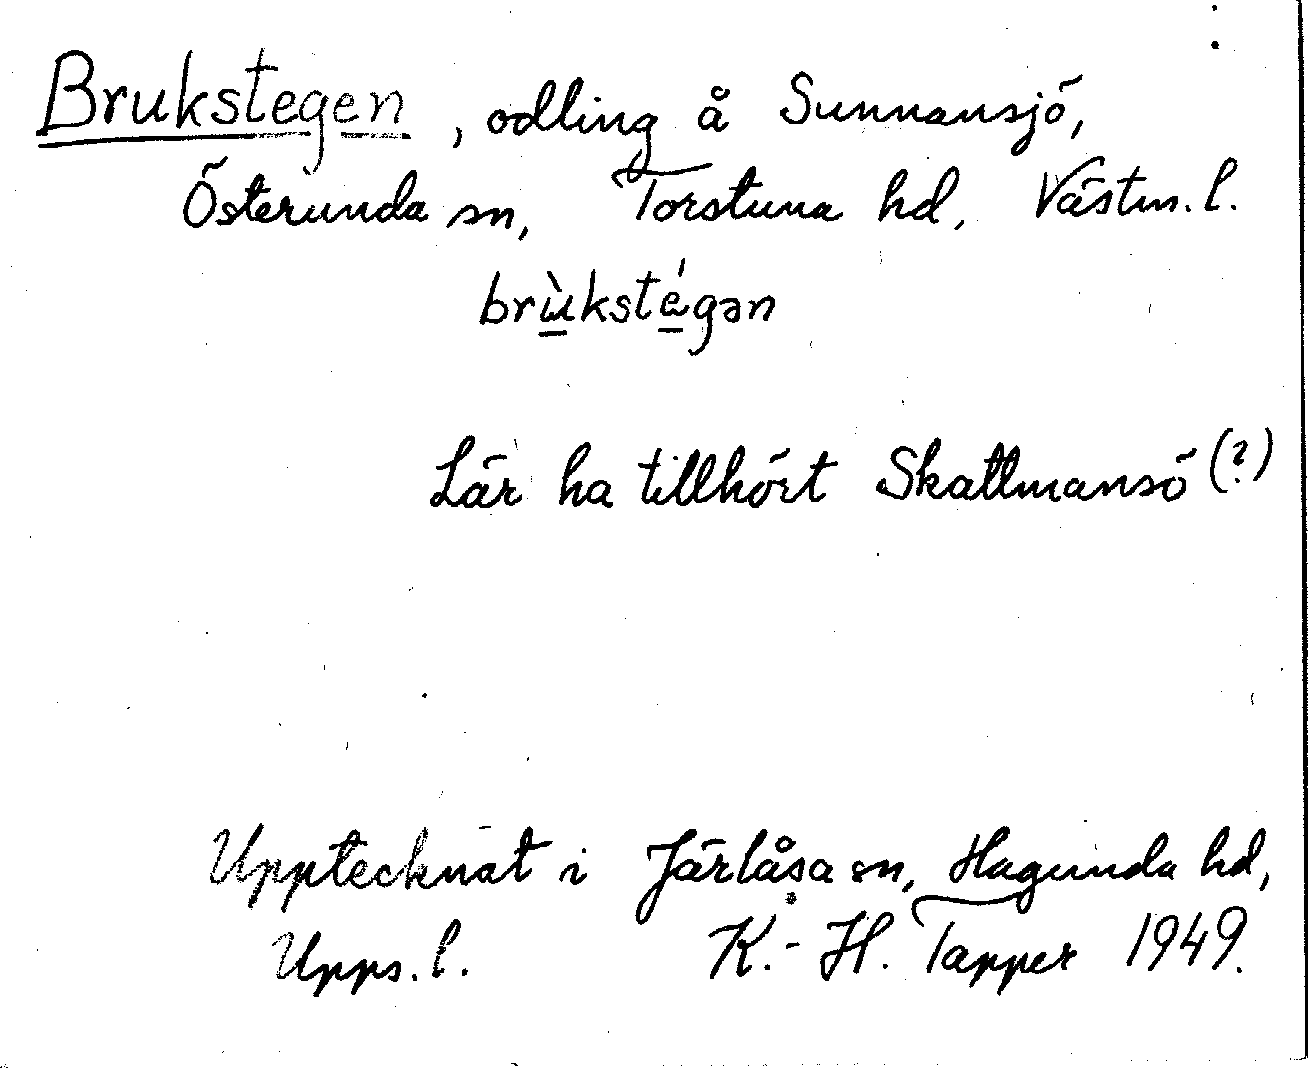 Brukstegen, odling å Sunnansjö,
Österunda sn, Torstuna hd, Västm. l.
brùkstégən
Lär ha tillhört Skattmansö (?)
Upptecknat i Järlåsa sn, Hagunda hd,
Upps. l. K.-H. Tapper 1949.